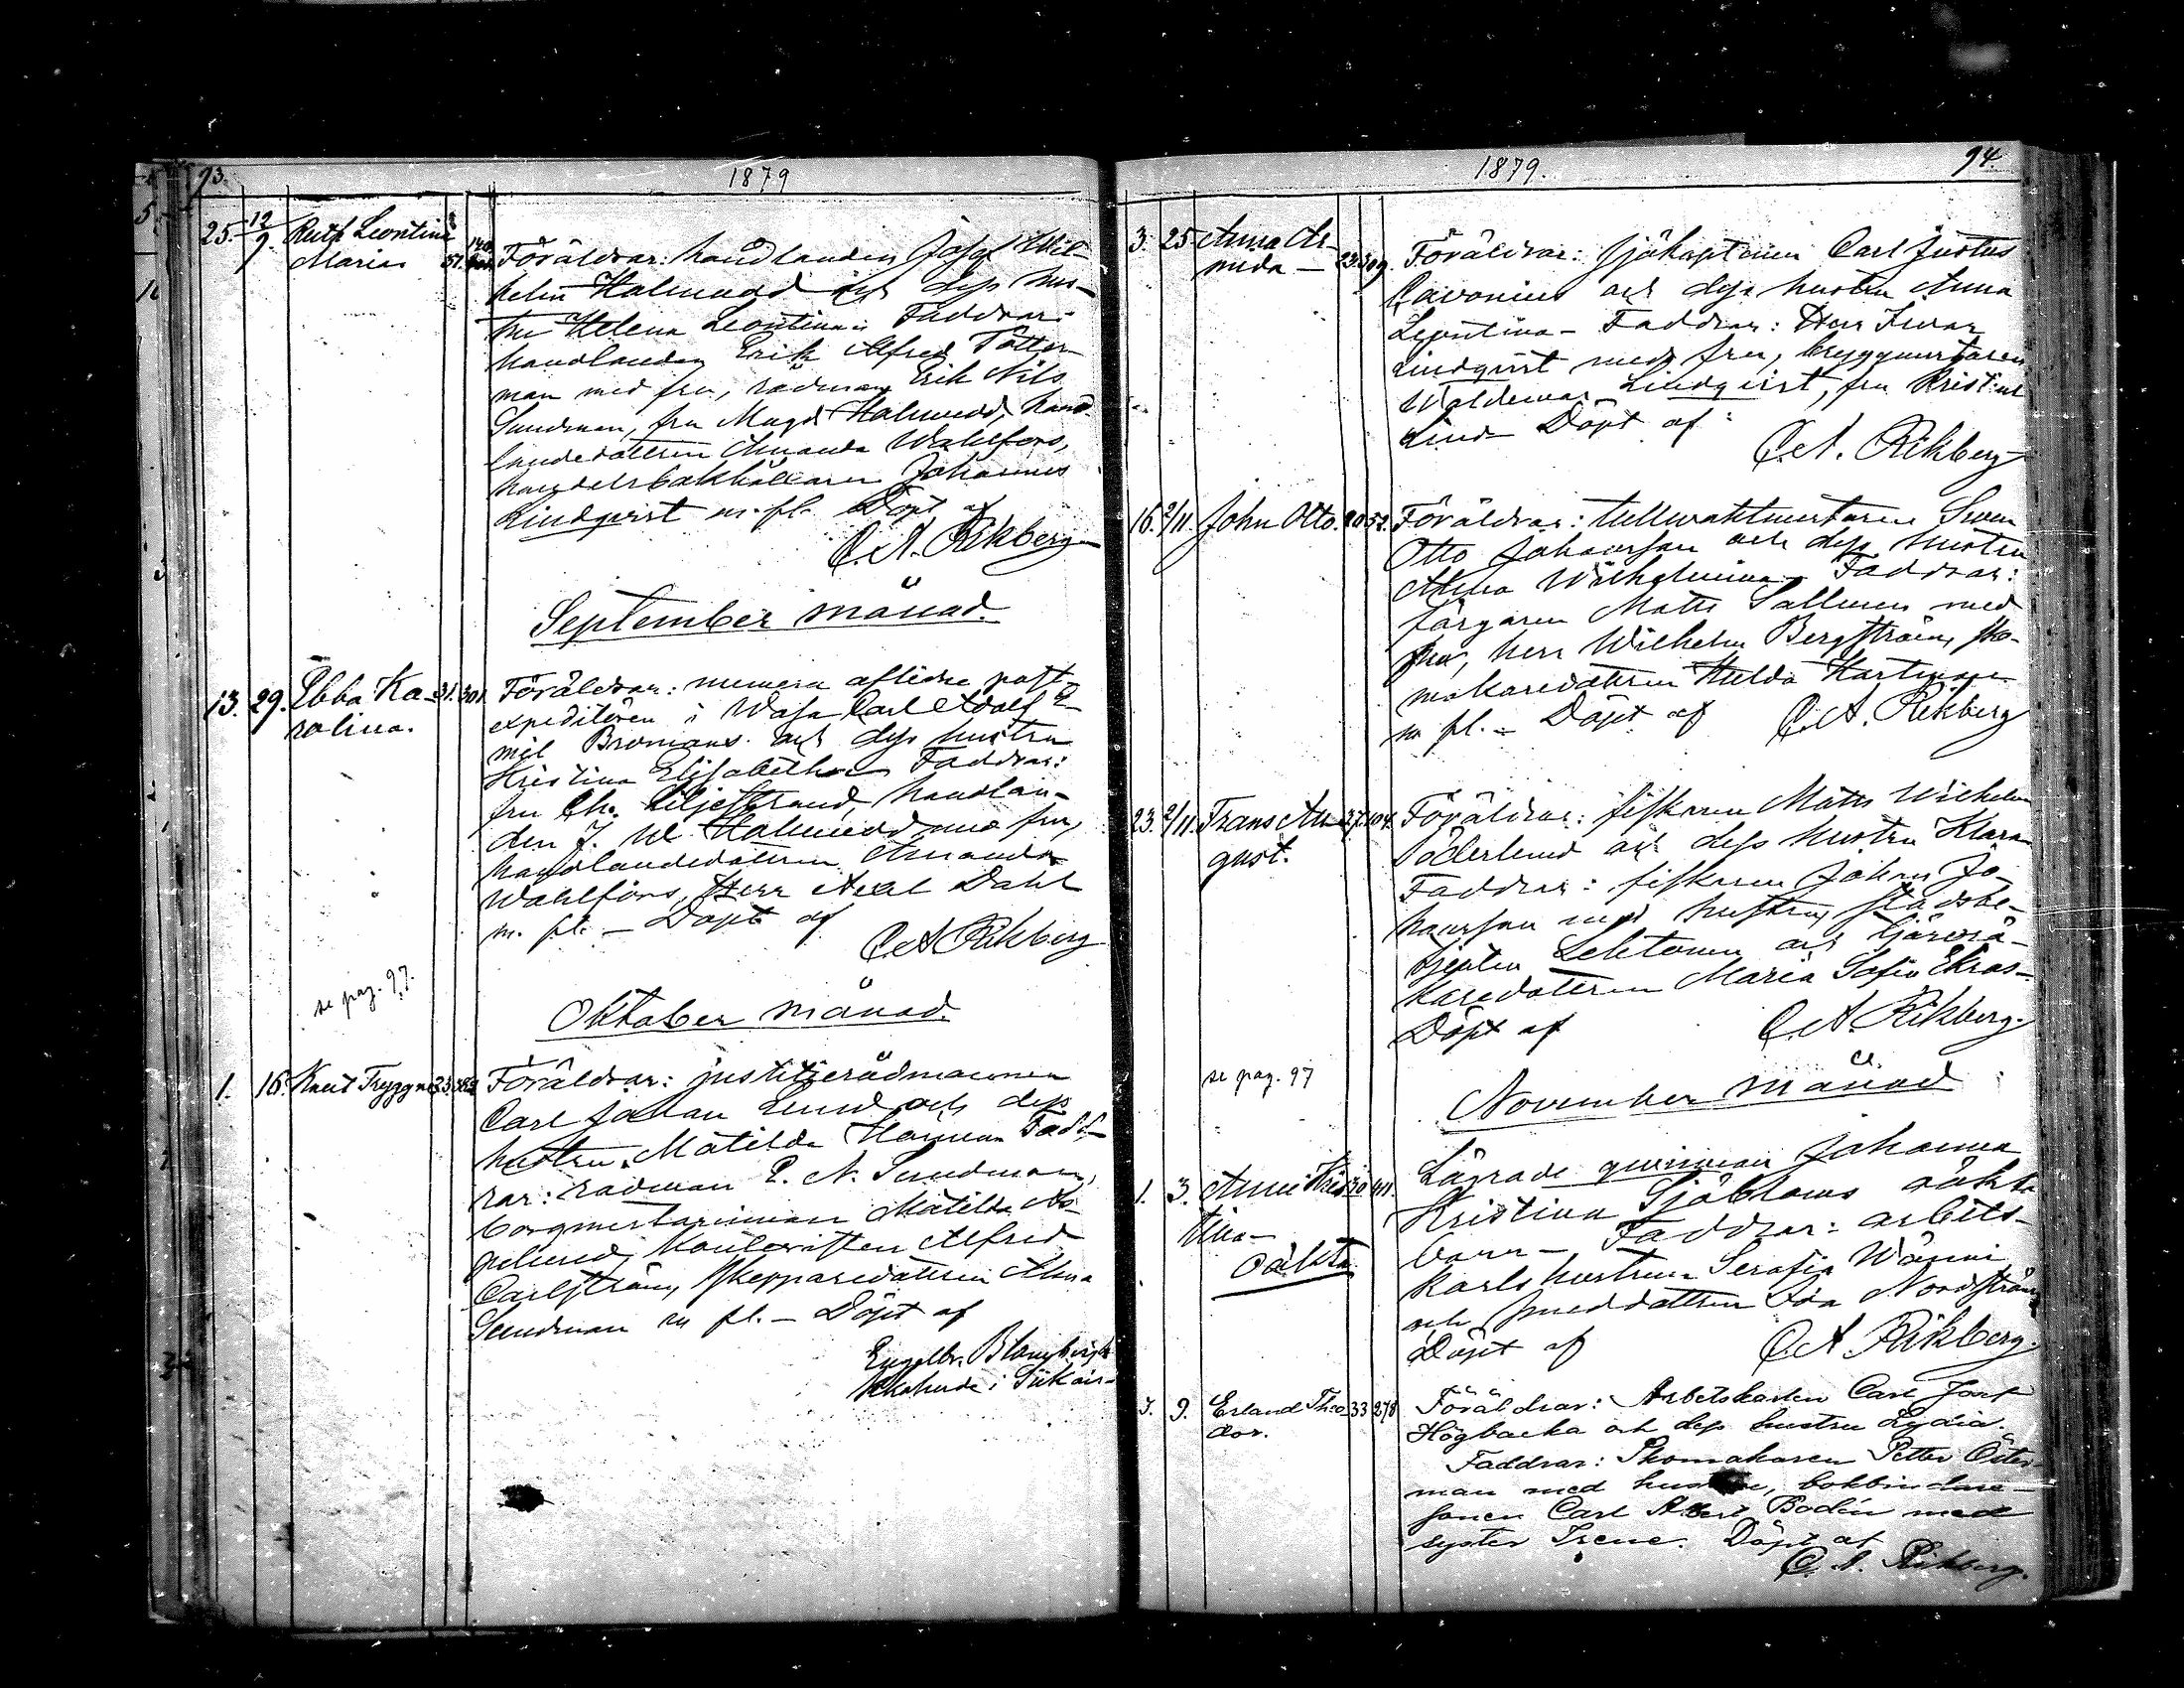 93.
1879
25. 12/9. Ruth Leontina
Maria 37. 140 Föräldrar: handlanden Josef Wil-
helm Holmudd och dess hus-
tru Helena Leontina. Faddrar:
handlanden Erik Alfred Tötter-
man med fru, rådman Erik Nils
Sundman, fru Magd. Holmudd, hand-
landedottern Amanda Wahlfors,
handelsbokhållaren Johannes
Lindqvist m. fl. Döpt af
C. A. Rikberg
September månad.
13. 29. Ebba Ka- 31. 301. Föräldrar: numera aflidne post-
rolina. expeditören i Wasa Carl Adolf E-
mil Bromans och dess hustru
Kristina Elisabeth Faddrar:
fru Ch. Liljestrand, handlan-
den J. W. Holmudd med fru,
handlandedottern Amanda
Wahlfors, Herr Axel Dahl
m. fl. – Döpt af
C. A. Rikberg
se pag. 97.
Oktober månad.
1. 16. Knut Tryggve 33. Föräldrar: justitierådmannen
Carl Johan Lund och dess
hustru Matilda Fadd-
rar: rådman E. N. Sundman,
borgmästarinnan Matilda As-
pelund, kontoristen Alfred
Carlström, skepparedottern Alma
Sundman m fl. – Döpt af
Engelbr.
i Siikais-
94.
1879.
3. 25 Anna Ar- 23. 309. Föräldrar: sjökaptenen Carl Justus
mida –
Cavonius och dess hustru Anna
Leontina – Faddrar: Herr Ivar
Lindqvist med fru, bryggmästaren
Waldemar Lindqvist, fru Kristina
Lind Döpt af
C. A. Rikberg
16. 2/11. John Otto. 20 52. Föräldrar: tullvaktmästaren Sven
Otto Johansson och dess hustru
Alma Wilhelmina – Faddrar:
färgaren Matts Sallmén med
fru, herr Wilhelm Bergström, sko-
makaredottern Hulda Hartman
m fl. – Döpt af C. A. Rikberg
23. 2/11. Frans Au- 27. 104. Föräldrar: fiskaren Matts Wilhelm
gust.
Söderlund och dess hustru Klara
Faddrar: fiskaren Johan Jo-
hansson med hustru, stadsbe-
tjenten Lehtonen och
karedottern Maria Sofia Ekros–
Döpt af C. A. Rikberg.
se pag. 97
November månad
1. 3. Anna Kris- 30 411. Lägrade qvinnan Johanna
tina – Kristina Sjöbloms oäkta
oäkta barn – Faddrar: arbets-
karls hustrun Serafia Wänni
och smeddottern Ida Nordström
Döpt af C. A. Rikberg.
7. 9. Erland Theo- 33 278 Föräldrar: Arbetskarlen Carl Josef
dor. Högbacka och dess hustru Lydia.
Faddrar: Skomakaren Petter Öster-
man med hustru, bokbindare-
sonen Carl Albert Bodén med
syster Irene. Döpt af
C. A. Rikberg.